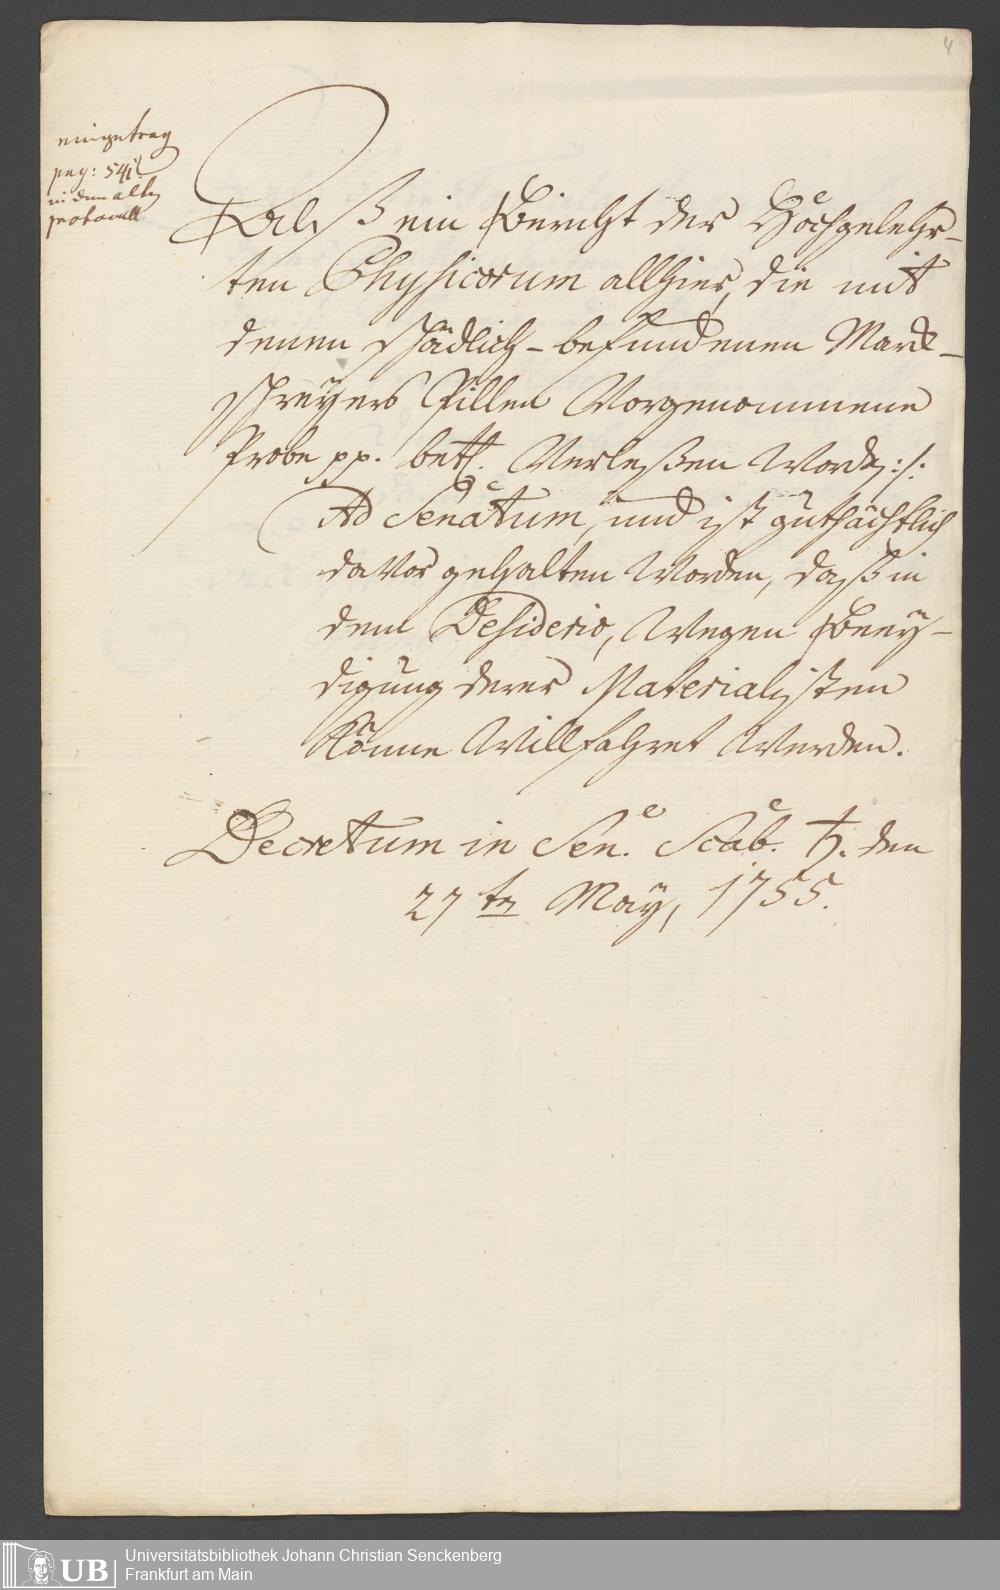 4
eingetrag
pag: 541
in dem alten
protocoll
Alß ein Bericht der Hochgelehr-
ten Physicorum allhier, die mit
denen schädlich-befundenen Marck-
schreyers Pillen Vorgenommene
Probe pp. betr. Verleßen Worden:/:
Ad Senatum, und ist guthächtlich
davor gehalten Worden, daß in
dem Desiderio, Wegen Beey-
digung derer Materialisten
könne Willfahret Werden.
Decretum in Sen. Scab. ♄. den
27ten May, 1755.
UB
Universitätsbibliothek Johann Christian Senckenberg
Frankfurt am Main